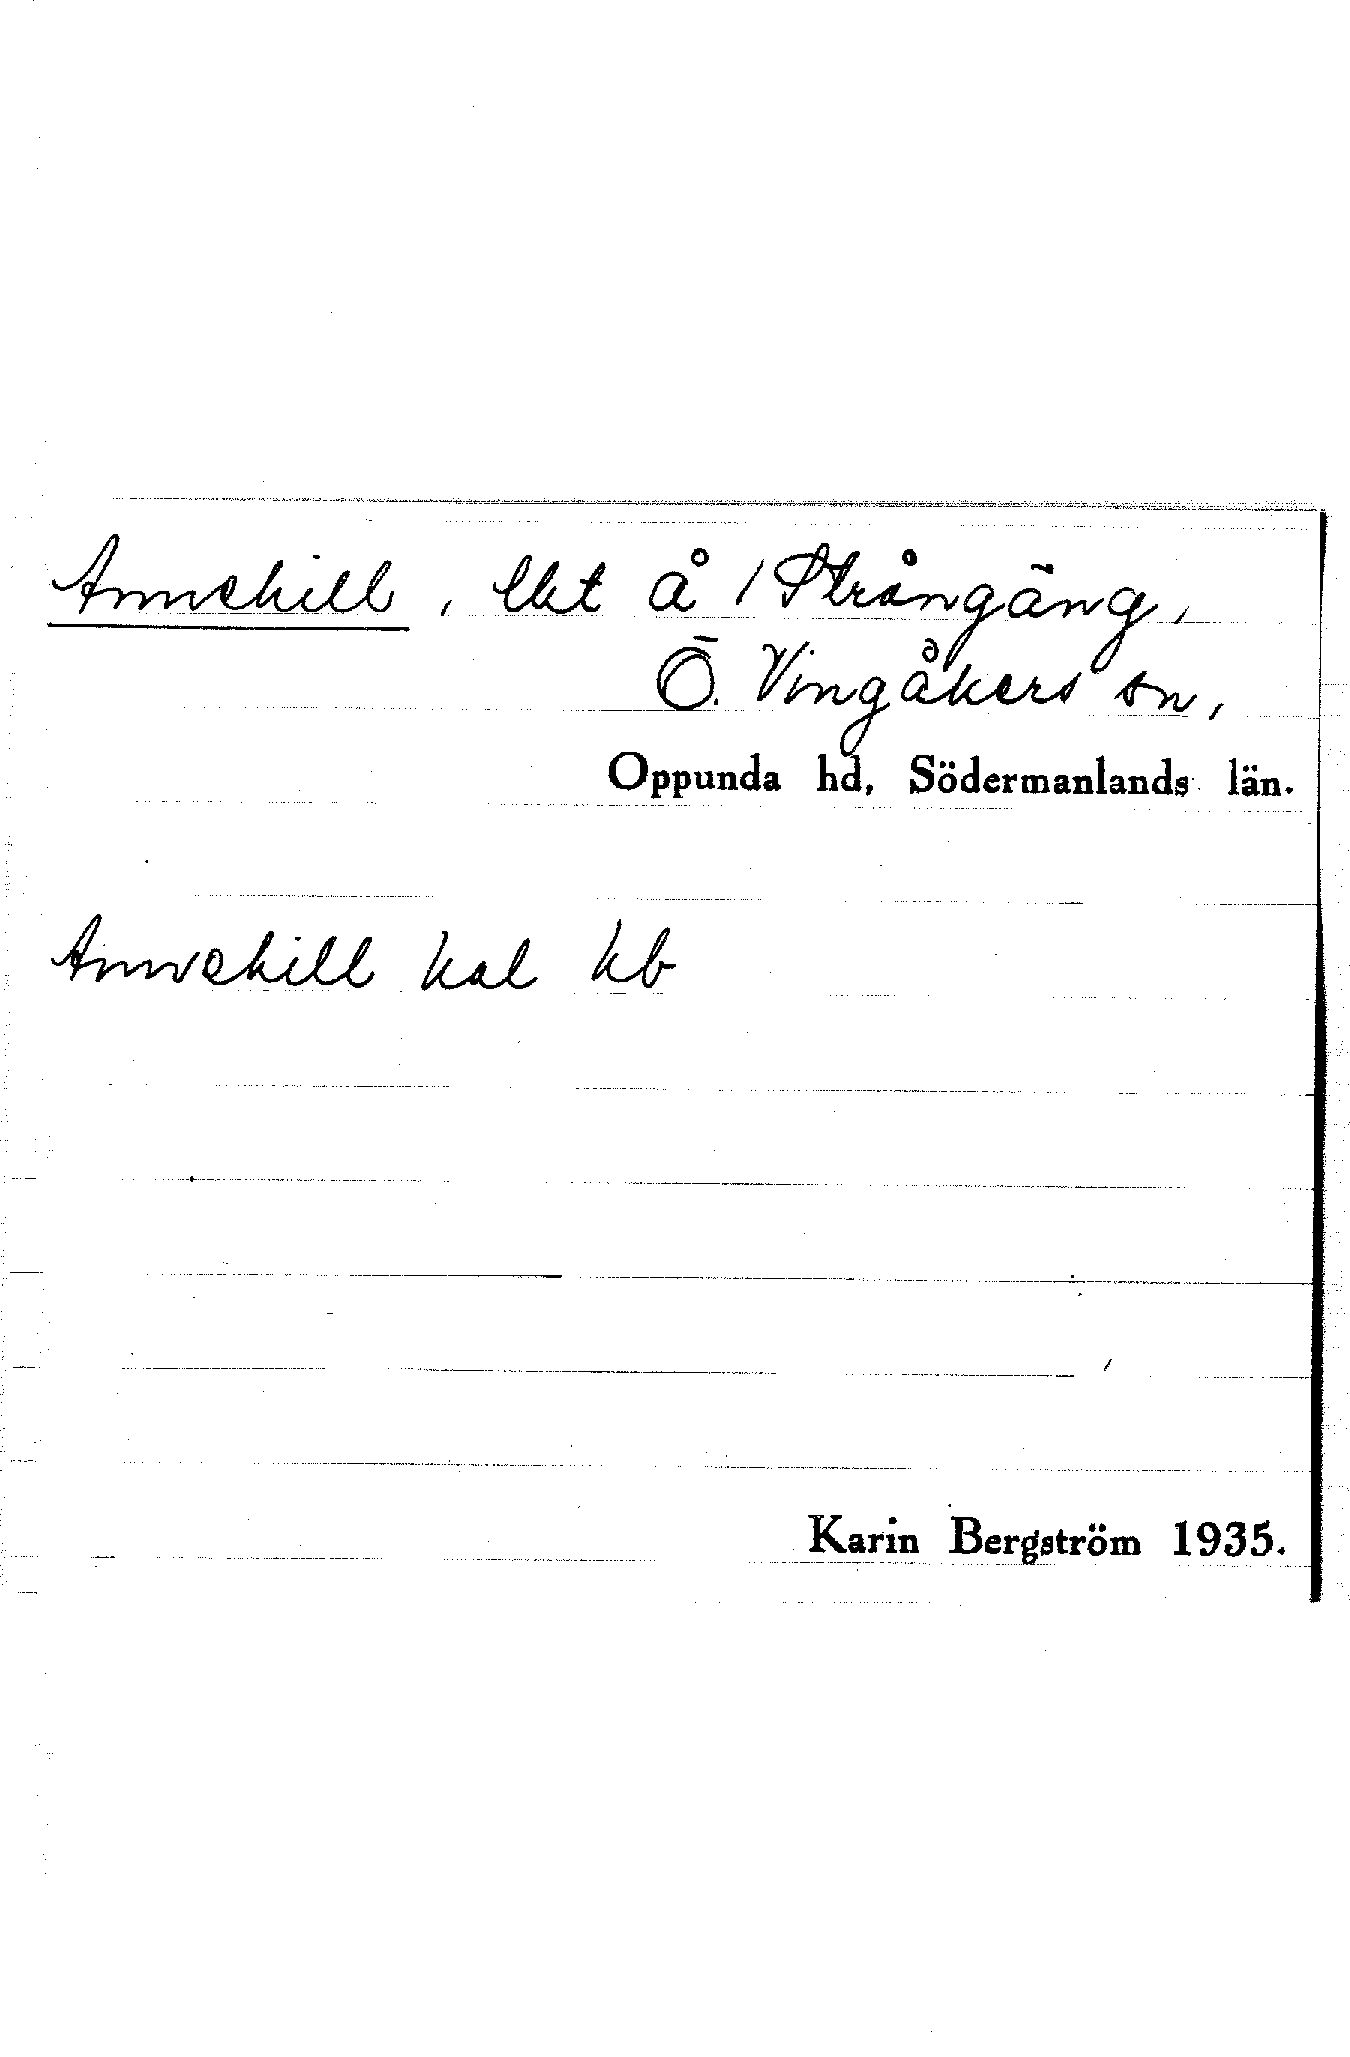 Annehill, lht å 1 Strångäng,
Ö. Vingåkers sn,
Oppunda hd, Södermanlands län.
Annehill kal kb
Karin Bergström 1935.